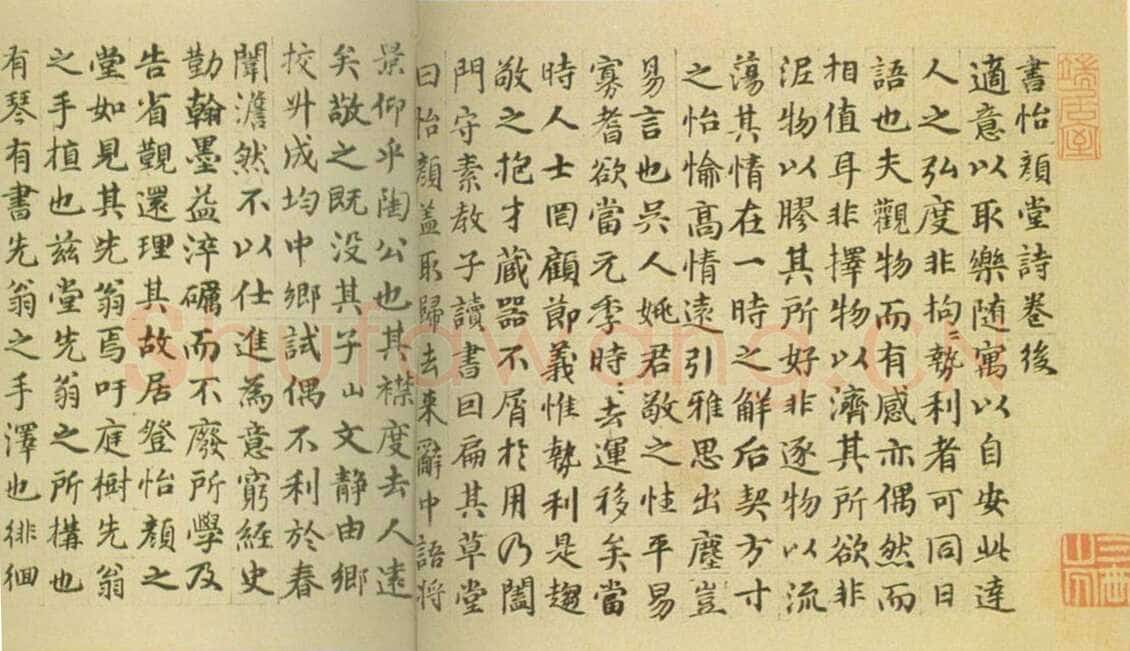 書怡顔堂詩卷後
適意以取樂随寓以自安此達
人之弘度非拘〻勢利者可同日
語也夫觀物而有感亦偶然而
相值耳非擇物以濟其所欲非
泥物以膠其所好非逐物以流
蕩其情在一時之解后契方寸
之怡愉高情遠引雅思出塵豈
易言也吴人姚君敬之性平易
寡耆欲當元季時〻去運移矣當
時人士罔顧節義惟勢利是趨
敬之抱才蔵器不屑於用乃闔
門守素教子讀書曰扁其草堂
曰怡顔盖取歸去来辭中語将
景仰乎陶公也其襟度去人遠
矣敬之既没其子山文静由郷
挍升成均中郷試偶不利於春
闈澹然不以仕進為意窮經史
勤翰墨益淬礪而不廢所學及
告省覲還理其故居登怡顔之
堂如見其先翁焉吁庭樹先翁
之手植也兹堂先翁之所構也
有琴有書先翁之手澤也徘徊
Shufawang.cn